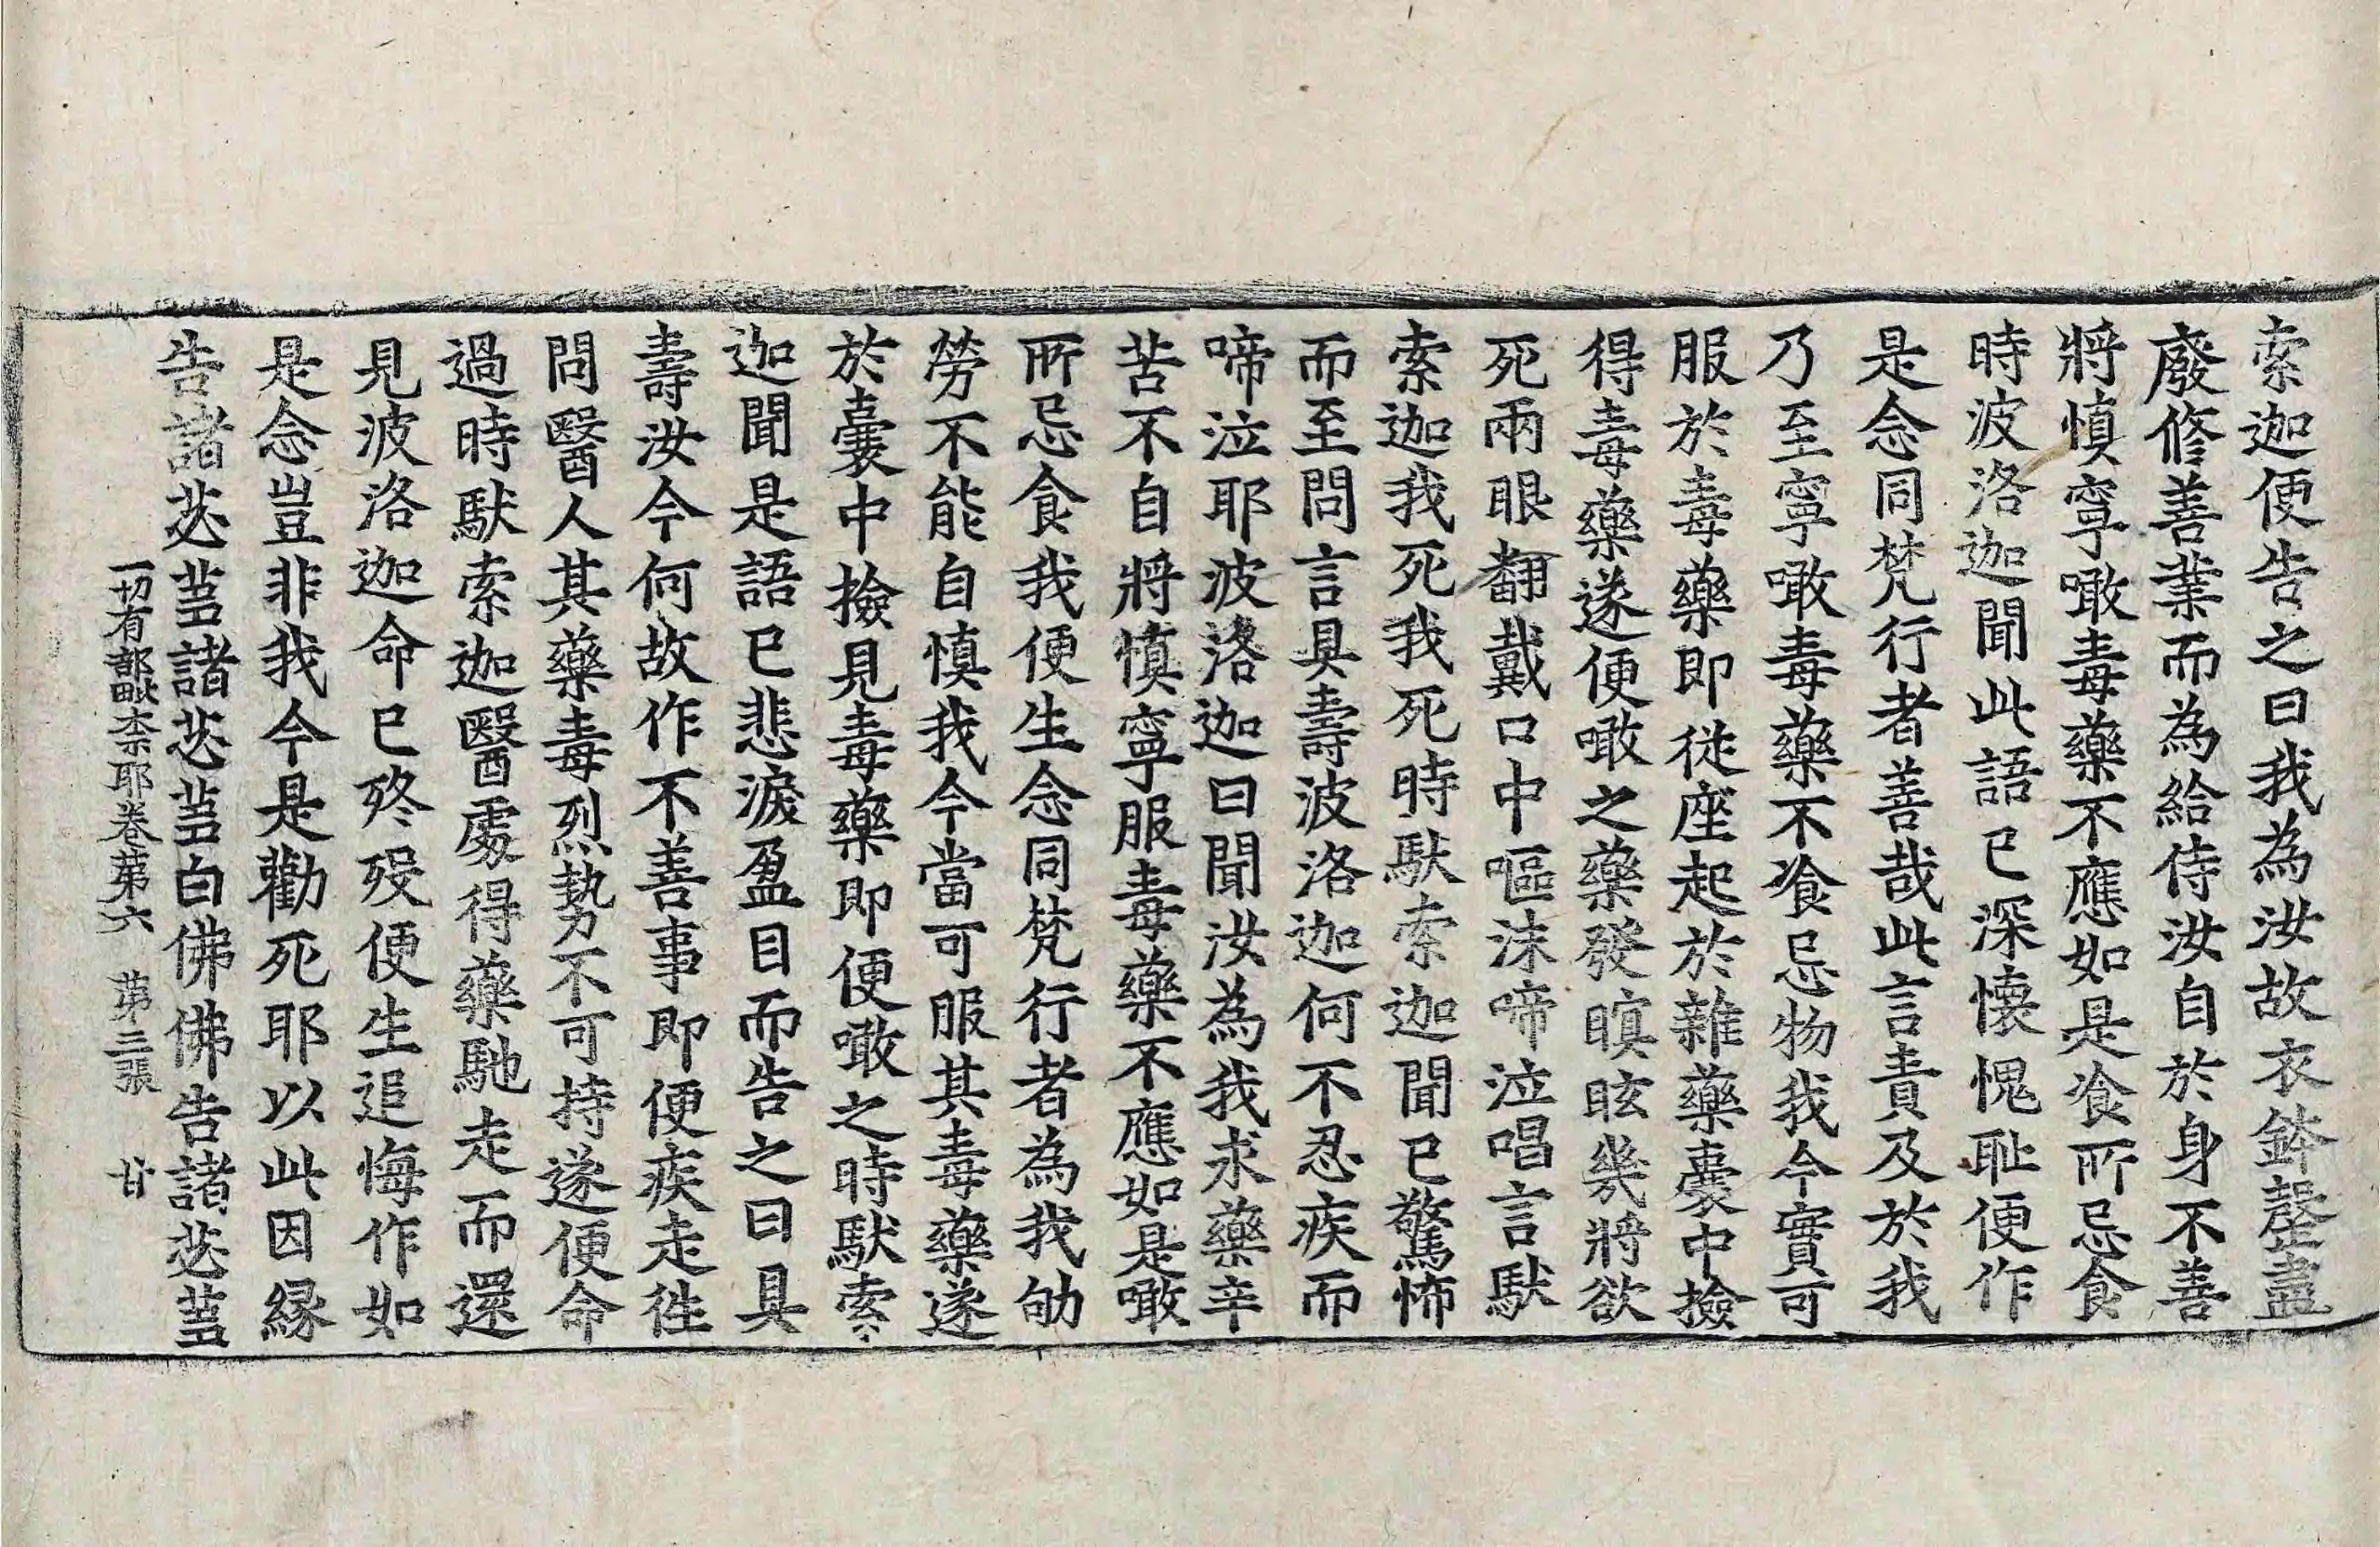 索迦便告之曰我為汝故衣鉢罄盡
廢修善業而為給侍汝自於身不善
將慎寧噉毒藥不應如是飡所忌食
時波洛迦聞此語已深懷愧恥便作
是念同梵行者善哉此言責及於我
乃至寧噉毒藥不飡忌物我今實可
服於毒藥即從座起於雜藥囊中撿
得毒藥遂便噉之藥發瞑眩幾將欲
死兩眼翻戴口中嘔沫啼泣唱言馱
索迦我死我死時馱索迦聞已驚怖
而至問言具壽波洛迦何不忍疾而
啼泣耶波洛迦曰聞汝為我求藥辛
苦不自將慎寧服毒藥不應如是噉
所忌食我便生念同梵行者為我劬
勞不能自慎我今當可服其毒藥遂
於囊中撿見毒藥即便噉之時馱索
迦聞是語已悲淚盈目而告之曰具
壽汝今何故作不善事即便疾走往
問醫人其藥毒烈勢不可持遂便命
過時馱索迦醫處得藥馳走而還
見波洛迦命已終歿便生追悔作如
是念豈非我今是勸死耶以此因縁
告諸苾芻諸苾芻白佛佛告諸苾芻
一切有部毗奈耶卷第六　第三張　廿